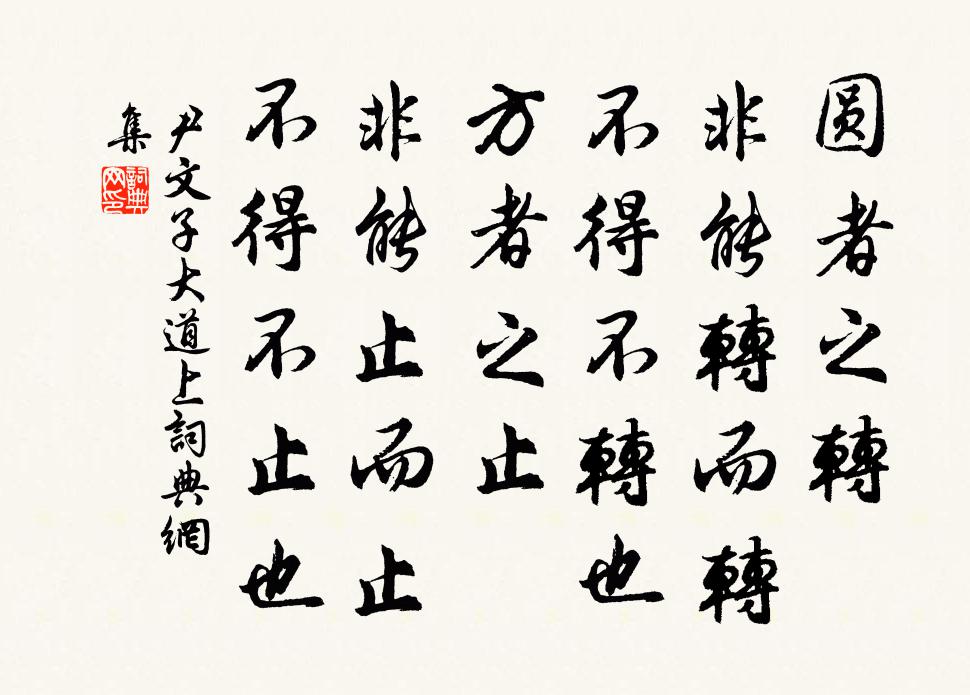 圆者之轉
非能轉而轉
不得不轉也
方者之止
非能止而止
不得不止也
尹文子大道上詞典網
集
詞典
网印